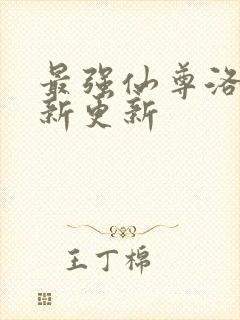 最强仙尊洛
新更新
王丁棉